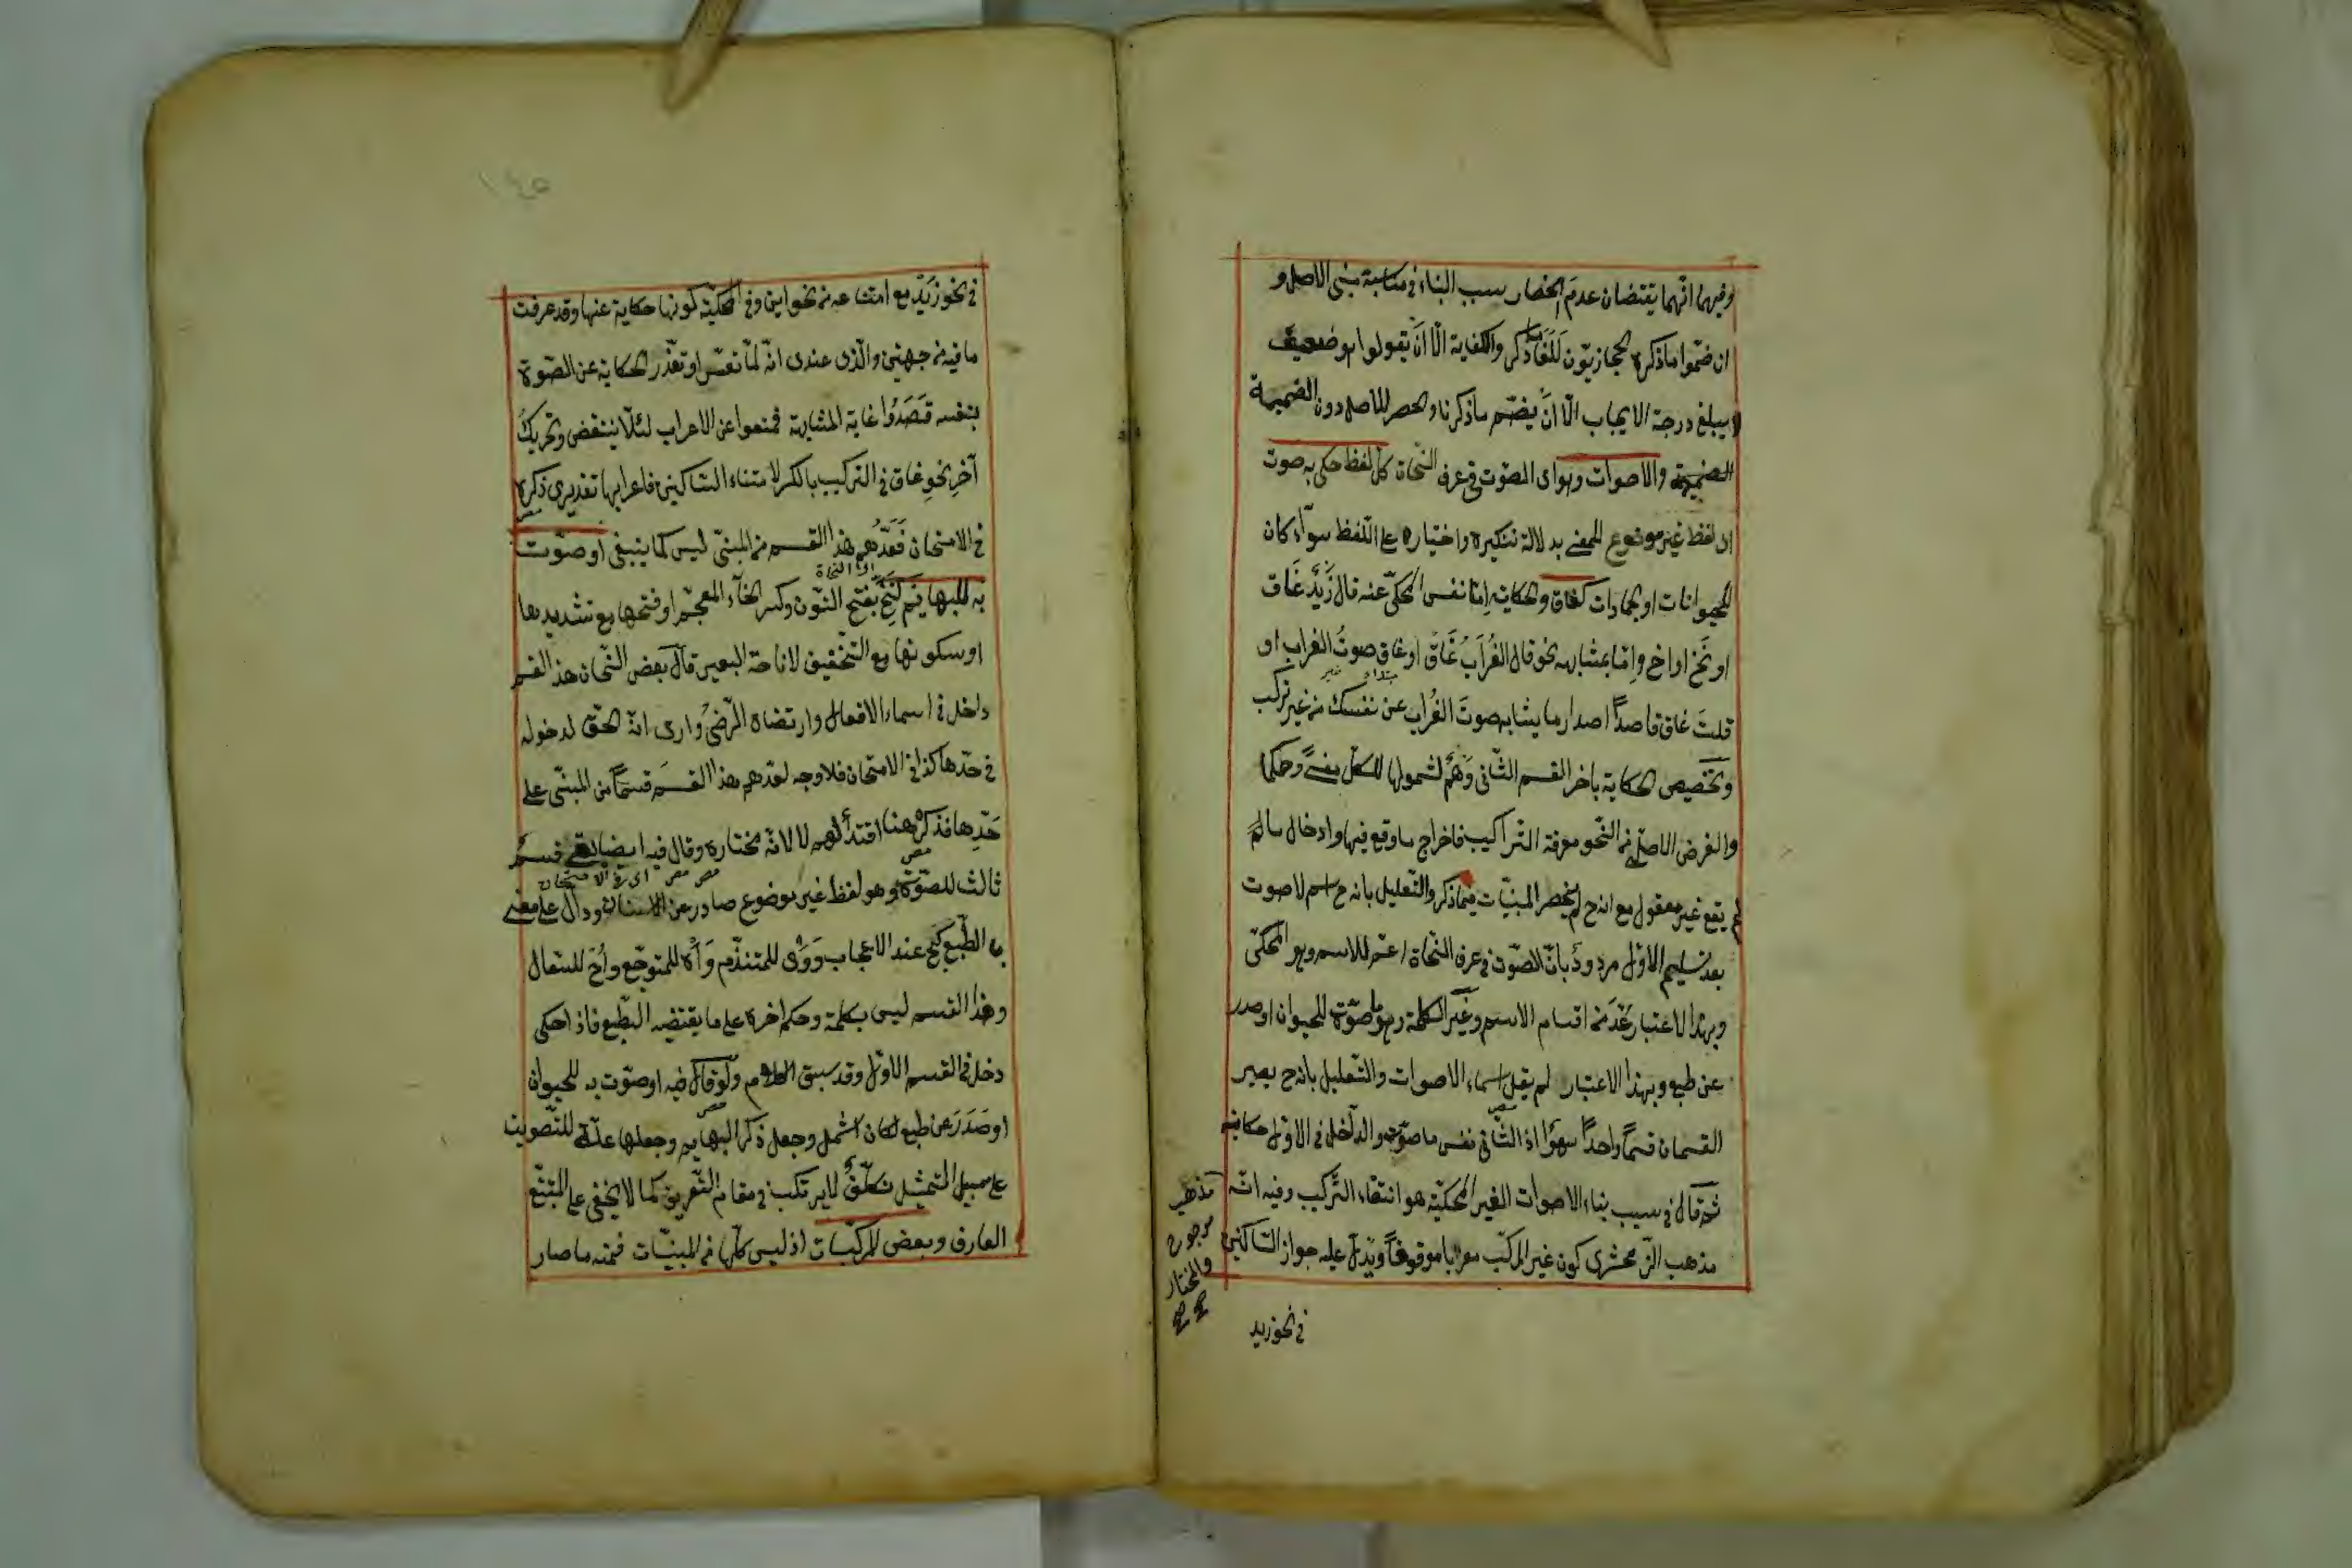 وفيهما انهما يقتضيان عدم انحصار سبب البناء في مناسبة مبنى الاصل و
ان ضمّوا ما ذكره الحجازيّون للغا ذكر والكفاية الّا أن يقولوا هو ضعيف
لا يبلغ درجة الايجاب الّا أنْ يضمّ ما ذكرنا والحصر للاصل دون الضميمة
الضميمة والاصوات وهو اى الصّوت في عرف النّحاة كلّ لفظ حكى به صوت
اى لفظ غير موضوع للمعنى بدلالة تنكيره واختياره على اللّفظ سوآء كان
للحيوانات او الجمادات كغاق والحكاية إمّا نفس المحكىّ عنه قال زَيدٌ غَاق
او نَخ او اخ وإمّا بمشابهه نحو قال الغُرَابُ غَاق او غاق صوتُ الغراب او
مبتداء خبر
قلتَ غاق قاصداً اصدار ما يشابه صوتَ الغُراب عن نفسك من غير تركيب
وتخصيص الحكاية باخر القسم الثّانى وَهْم لشمولها للكلّ معنىً وحكما
والغرض الاصلى من النّحو معرفة التّراكيب فاخراج ما وقع فيها وادخال ما لم
لم يقع غير معقول مع انه ح لم ينحصر المبنيّات فيما ذكر والتّعليل بانه ح اسم لا صوت
بعد تسليم الاوّل مردودٌ بأنّ الصّوت في عرف النّحاة اعمّ للاسم وهو المحكى
وبهذا الاعتبار عُدّ من اقسام الاسم وغير الكلمة وهو ما صوّت للحيوان او صدر
عن طبع وبهذا الاعتبار لم يقل اسماء الاصوات والتّعليل بانه ح يصير
القسمان قسماً واحداً سهوٌ اذ الثّانى نفس ما صوّت والدّاخل في الاوّل حكايته
ثم قال في سبب بناء الاصوات الغير المحكيّة هو انتفاء التّركيب وفيه انّه
مذهب الزّمخشرى كون غير المركّب معربا موقوفاً ويدلّ عليه جواز السّاكنين
مذهب
مرجوح
والمختار
في نحو زيد
١٤٥
في نحو زَيْد مع امتناعه من نحو اين وفي المحكيّة كونها حكاية عنها وقد عرفت
ما فيه من جهتين والّذى عندى انّه لمّا تعسّر او تعذّر الحكاية عن الصّوت
بنفسه قَصَدُوا غاية المشابهة فمنعوا عن الاعراب لئلّا ينتقض وتحريكُ
آخِرِ نحوِ غاق في التركيب بالكسر لامتناء السّاكنين فاعرابها تقديرى ذكره
مصر
في الامتحان فَعَدُّهم هذا القسم من المبنىّ ليس كما ينبغى او صوّت
اى النّحاة
به للبهايم كنَخ بفتح النّون وكسر الخآء المعجم او فتحها مع تشديدها
او سكونها مع التّخفيف لاناخة البعير قال بعض النّحاة هذا القسم
داخل في اسماء الافعال وارتضاه الرّضىُّ وارى انّه الحقّ لدخوله
في حدّها كذا في الامتحان فلا وجه لعدّهم هذا القسَم قسماً من المبنّى على
حَدّها فذكرُه هنا اقتدآءٌ لهم لا لانّه مختاره وقال فيه ايضا بقى قسمٌ
مصر مصر مصر اى في الامتحان
ثالث للصّوت وهو لفظ غير موضوع صادر عن الانسان ودالّ على معنى
بالطّبع كبخ عند الاعجاب ووَى للمتندّم وَآه للمتوجّع وأح للسّعال
وهذا القسم ليس بكلمة وحكم اخره على ما يقتضيه الطّبع فاذا حكى
دخل في القسم الاوّل وقد سبق الكلام ولو قال فيه او صوّت به للحيوان
مصر
او صَدَرَ عن طبع لكان اشمل وجعل ذكر البهايم وجعلها علّة للتّصويت
على سبيل التّمثيل تكلّفٌ لا يرتكب في مقام التّعريف كما لا يخفى على التتبّع
العارف وبعض المركّبات اذ ليس كلّها من المبنيّات فمنه ما صار